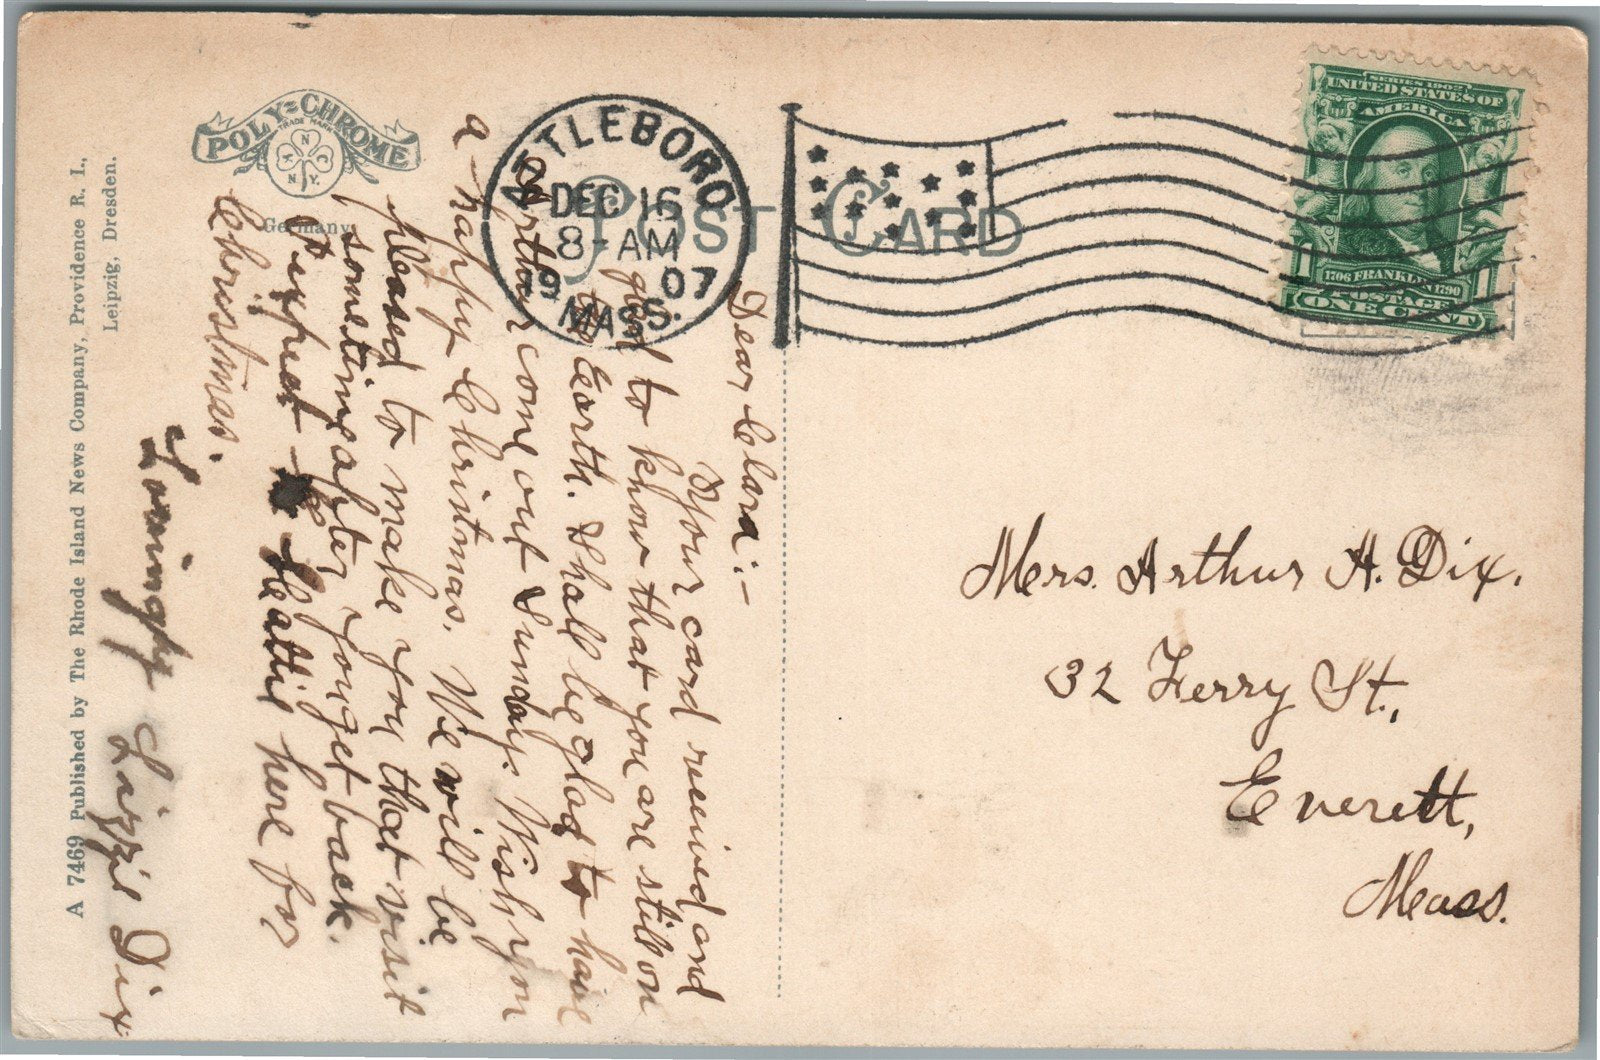 A 7469 Published by The Rhode Island News Company, Providence R. I.,
Leipzig, Dresden.
POLY-CHROME
TRADE MARK
N
N C
N.Y.
Germany
POST CARD
ATTLEBORO
DEC 16
8-AM
1907
MASS.
SERIES 1902
UNITED STATES OF
AMERICA
1 1
1706 FRANKLIN 1790
POSTAGE
ONE CENT
Dear Clara:-
Your card received and
glad to know that you are still on
the Earth. Shall be glad to have
Arthur come out Sunday. Wish you
a happy Christmas. We will be
pleased to make you that visit
sometime after you get back.
Expect Hattie here for
Christmas.
Lovingly Lizzie Dix
Mrs. Arthur H. Dix.
32 Ferry St.,
Everett,
Mass.